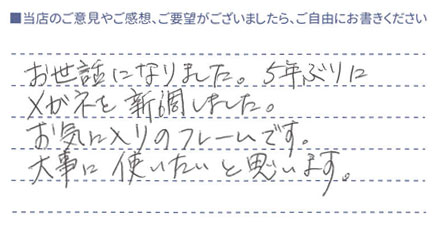 ■当店のご意見やご感想、ご要望がございましたら、ご自由にお書きください
お世話になりました。5年ぶりに
メガネを新調しました。
お気に入りのフレームです。
大事に使いたいと思います。